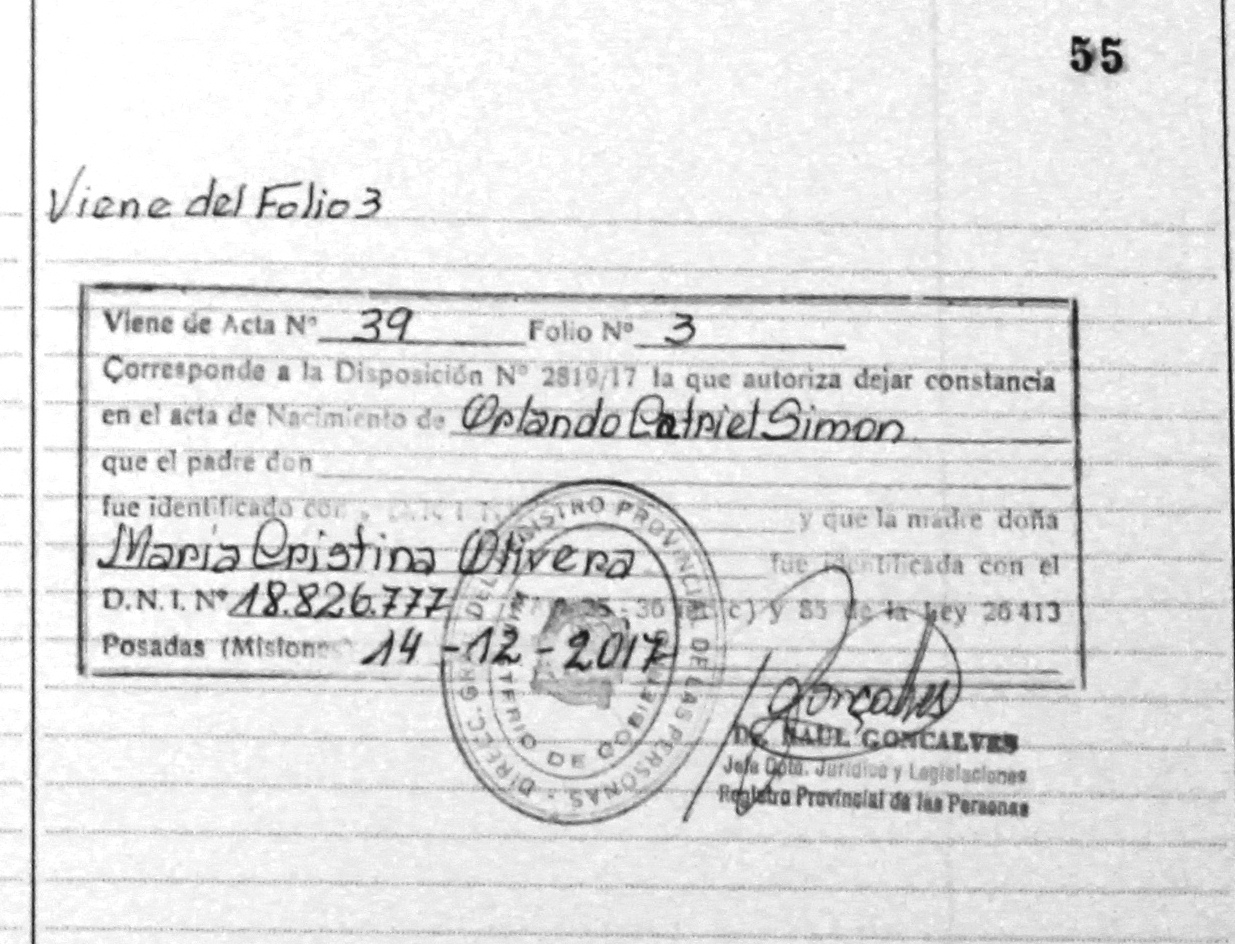 55
Viene del Folio 3
Viene de Acta N° 39 Folio N° 3
Corresponde a la Disposición N° 2819/17 la que autoriza dejar constancia
en el acta de Nacimiento de Orlando Catriel Simon
que el padre don
fue identificado con D.N.I. N° y que la madre doña
Maria Cristina Olivera fue identificada con el
D.N.I. N° 18.826.777 35 - 36 inc c) y 85 de la Ley 26413
Posadas (Misiones) 14-12-2017
DIRECC. GRAL. DEL REGISTRO PROVINCIAL DE LAS PERSONAS
MINISTERIO DE GOBIERNO
Goncalves
DR. RAUL GONCALVES
Jefe Dpto. Jurídico y Legislaciones
Registro Provincial de las Personas